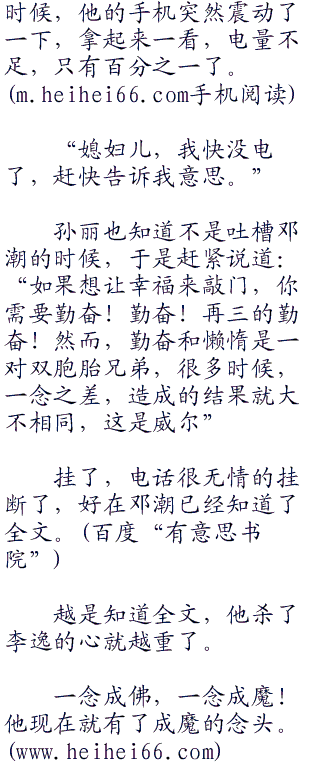 时候，他的手机突然震动了
一下，拿起来一看，电量不
足，只有百分之一了。
(m.heihei66.com手机阅读)
“媳妇儿，我快没电
了，赶快告诉我意思。”
孙丽也知道不是吐槽邓
潮的时候，于是赶紧说道：
“如果想让幸福来敲门，你
需要勤奋！勤奋！再三的勤
奋！然而，勤奋和懒惰是一
对双胞胎兄弟，很多时候，
一念之差，造成的结果就大
不相同，这是威尔”
挂了，电话很无情的挂
断了，好在邓潮已经知道了
全文。(百度“有意思书
院”)
越是知道全文，他杀了
李逸的心就越重了。
一念成佛，一念成魔！
他现在就有了成魔的念头。
(www.heihei66.com)